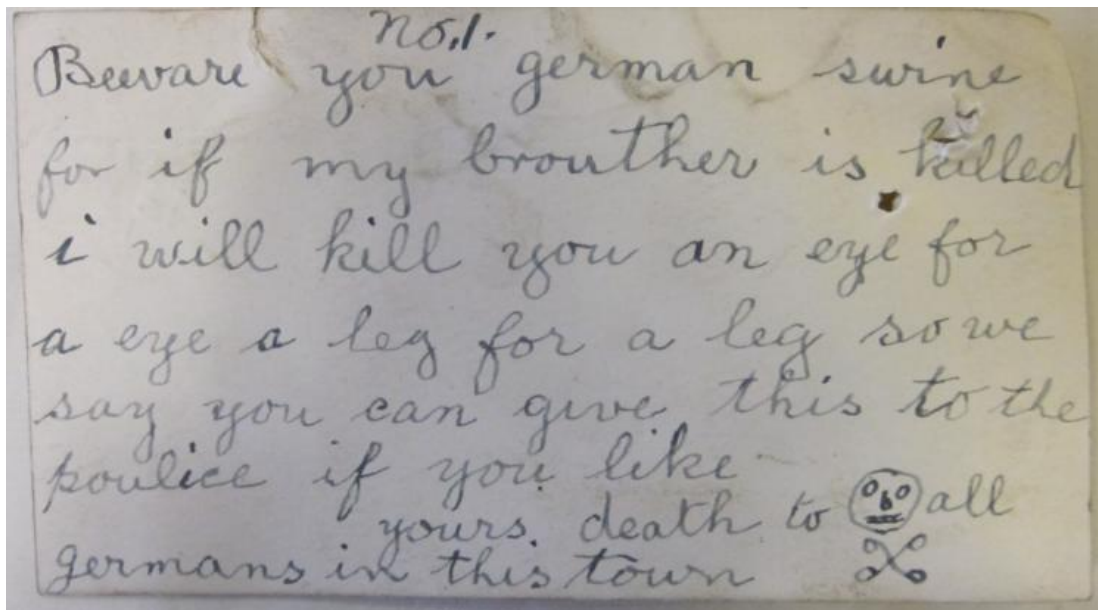 No.1.
Beware you german swine
for if my brouther is killed
i will kill you an eye for
a eye a leg for a leg so we
say you can give this to the
poulice if you like
yours. death to all
germans in this town